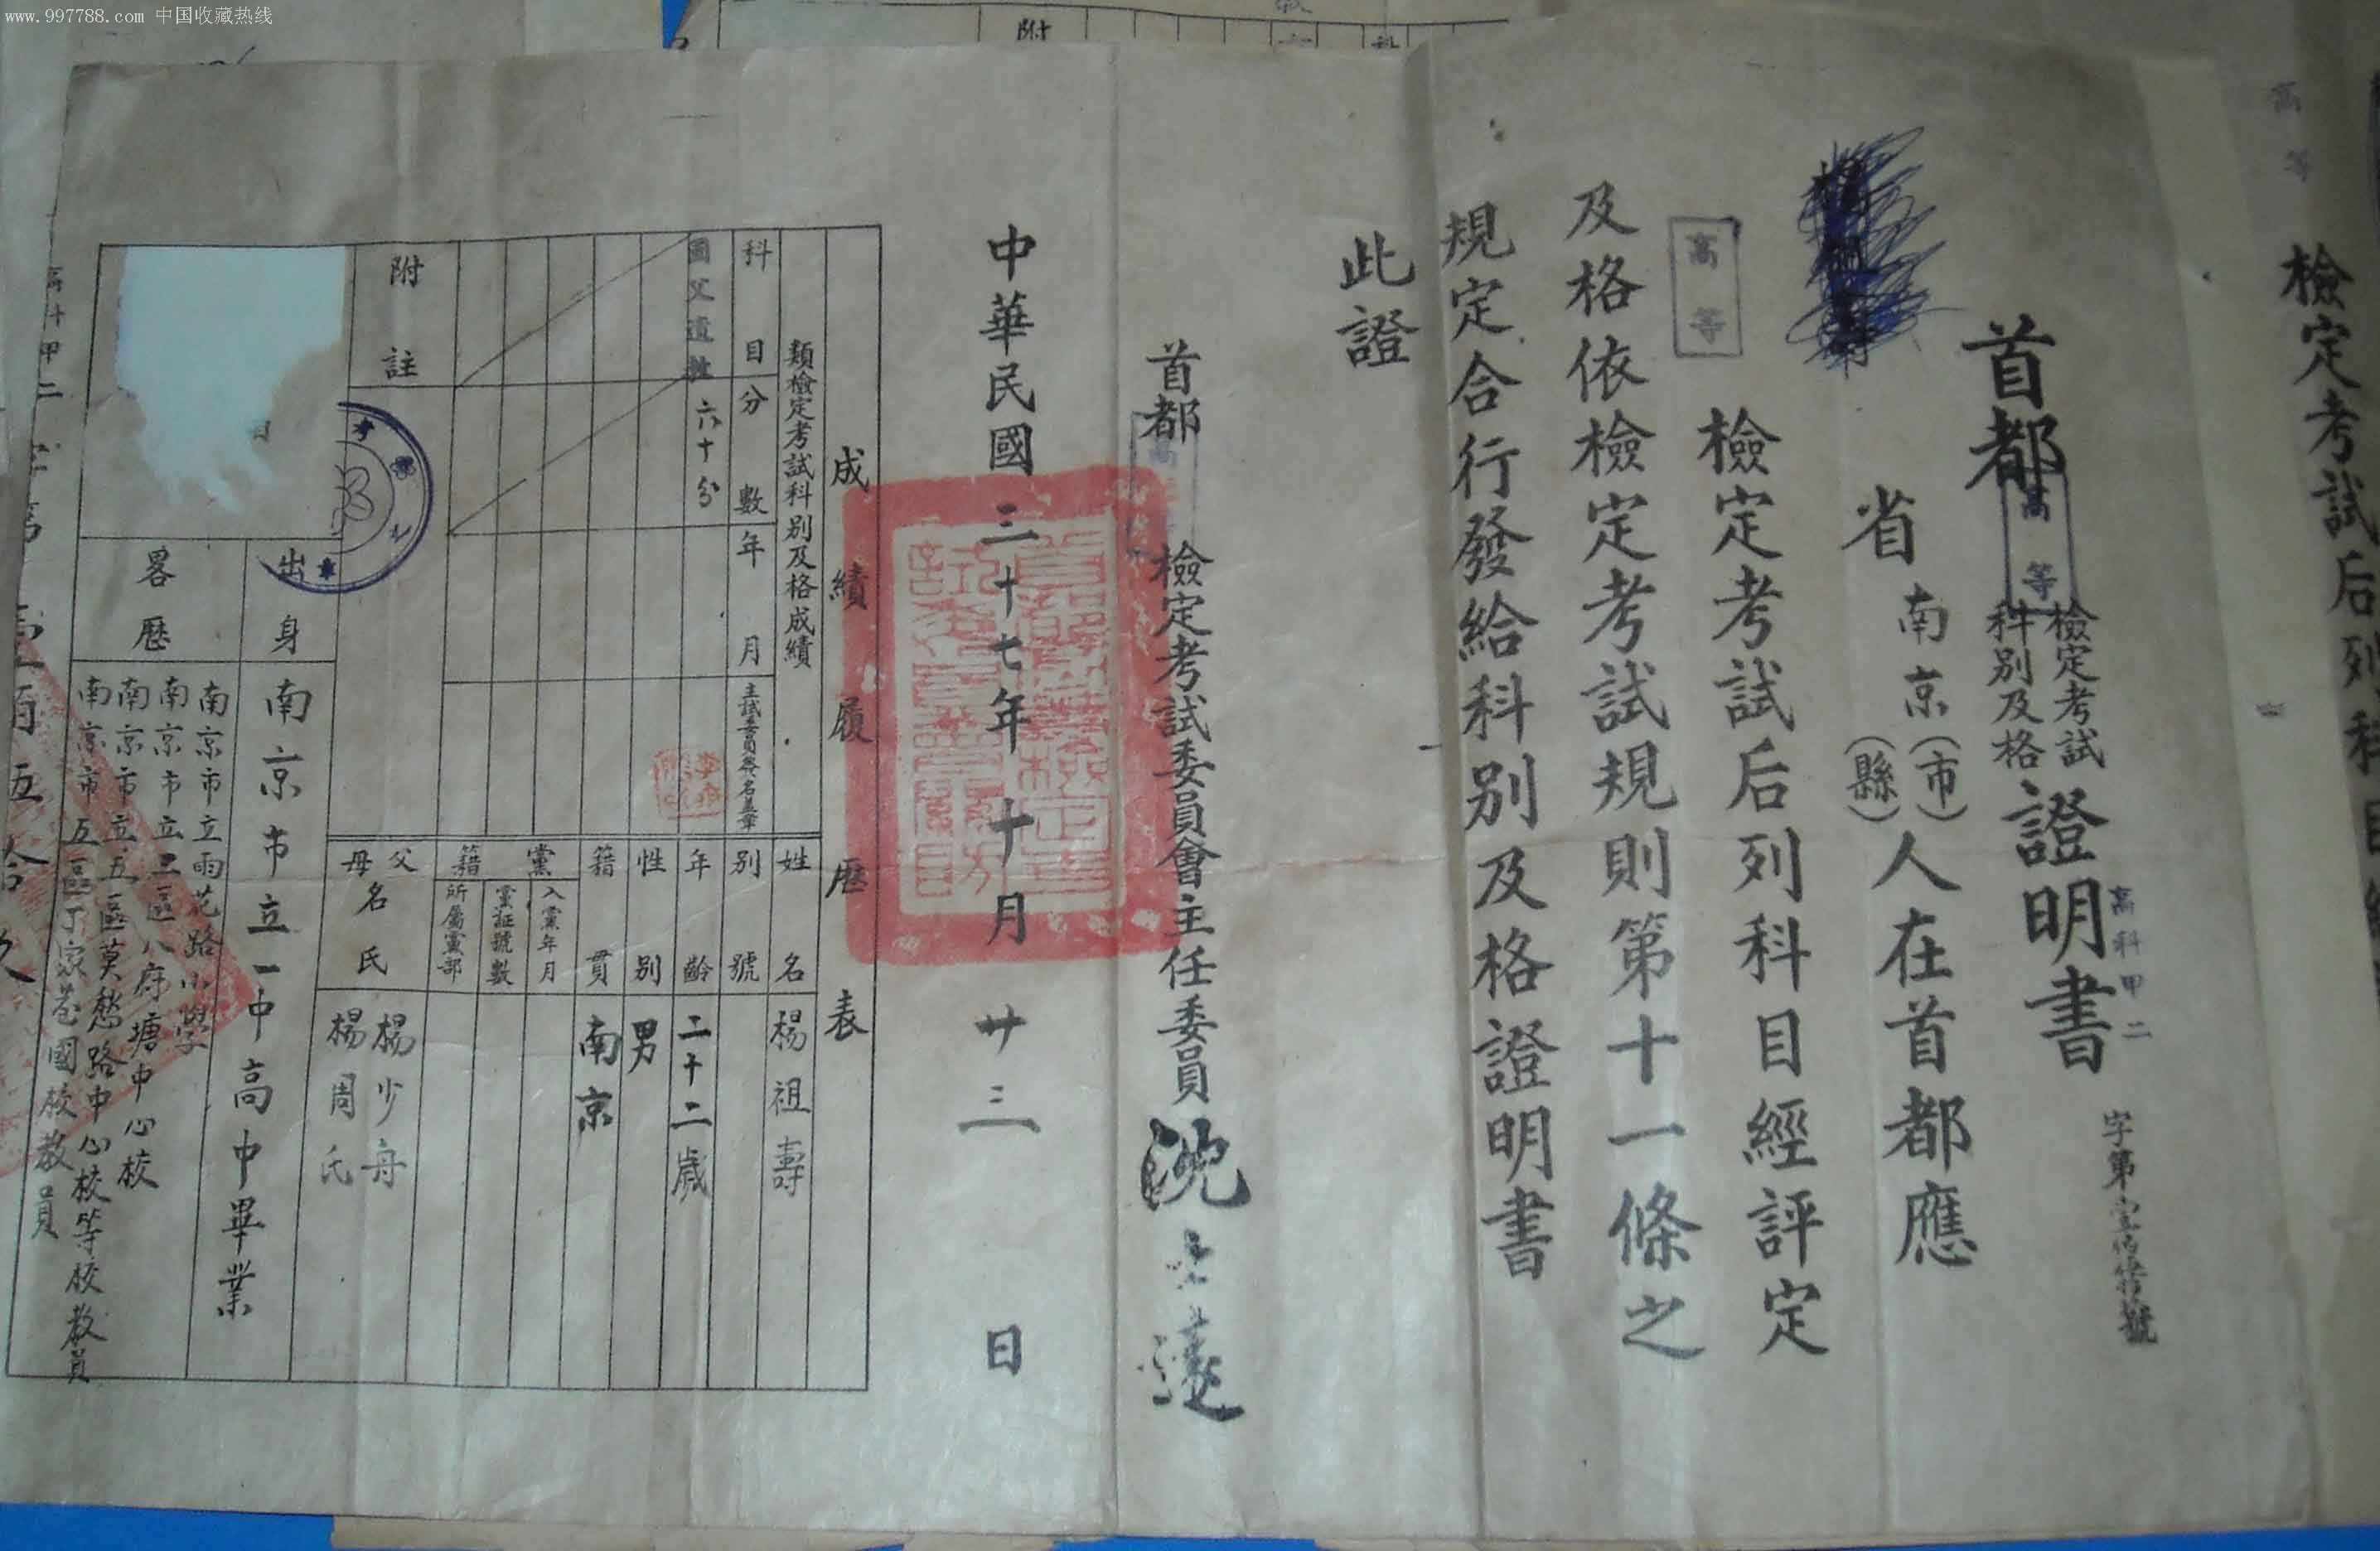 www.997788.com 中国收藏热线
檢定考試后列科目
高等
首都
高等
檢定考試
科別及格
證明書
高科甲二
字第
號
省南京(市)
(縣)
人在首都應
高等
檢定考試后列科目經評定
及格依檢定考試規則第十一條之
規定合行發給科別及格證明書
此證
首都
檢定考試委員會主任委員沈
中華民國三十七年十月廿三日
成績履歷表
類檢定考試科別及格成績
科目
分數
年月
主試委員典名蓋章
國父遺教
六十分
附註
姓名
楊祖壽
別號
年齡
二十二歲
性別
男
籍貫
南京
黨籍
入黨年月
黨証號數
所屬黨部
父母名氏
楊少舟
楊周氏
出身
南京市立一中高中畢業
畧歷
南京市立雨花路小學
南京市立三區八府塘中心校
南京市立五區莫愁路中心校等校教員
南京市五區丁家巷國校教員
附